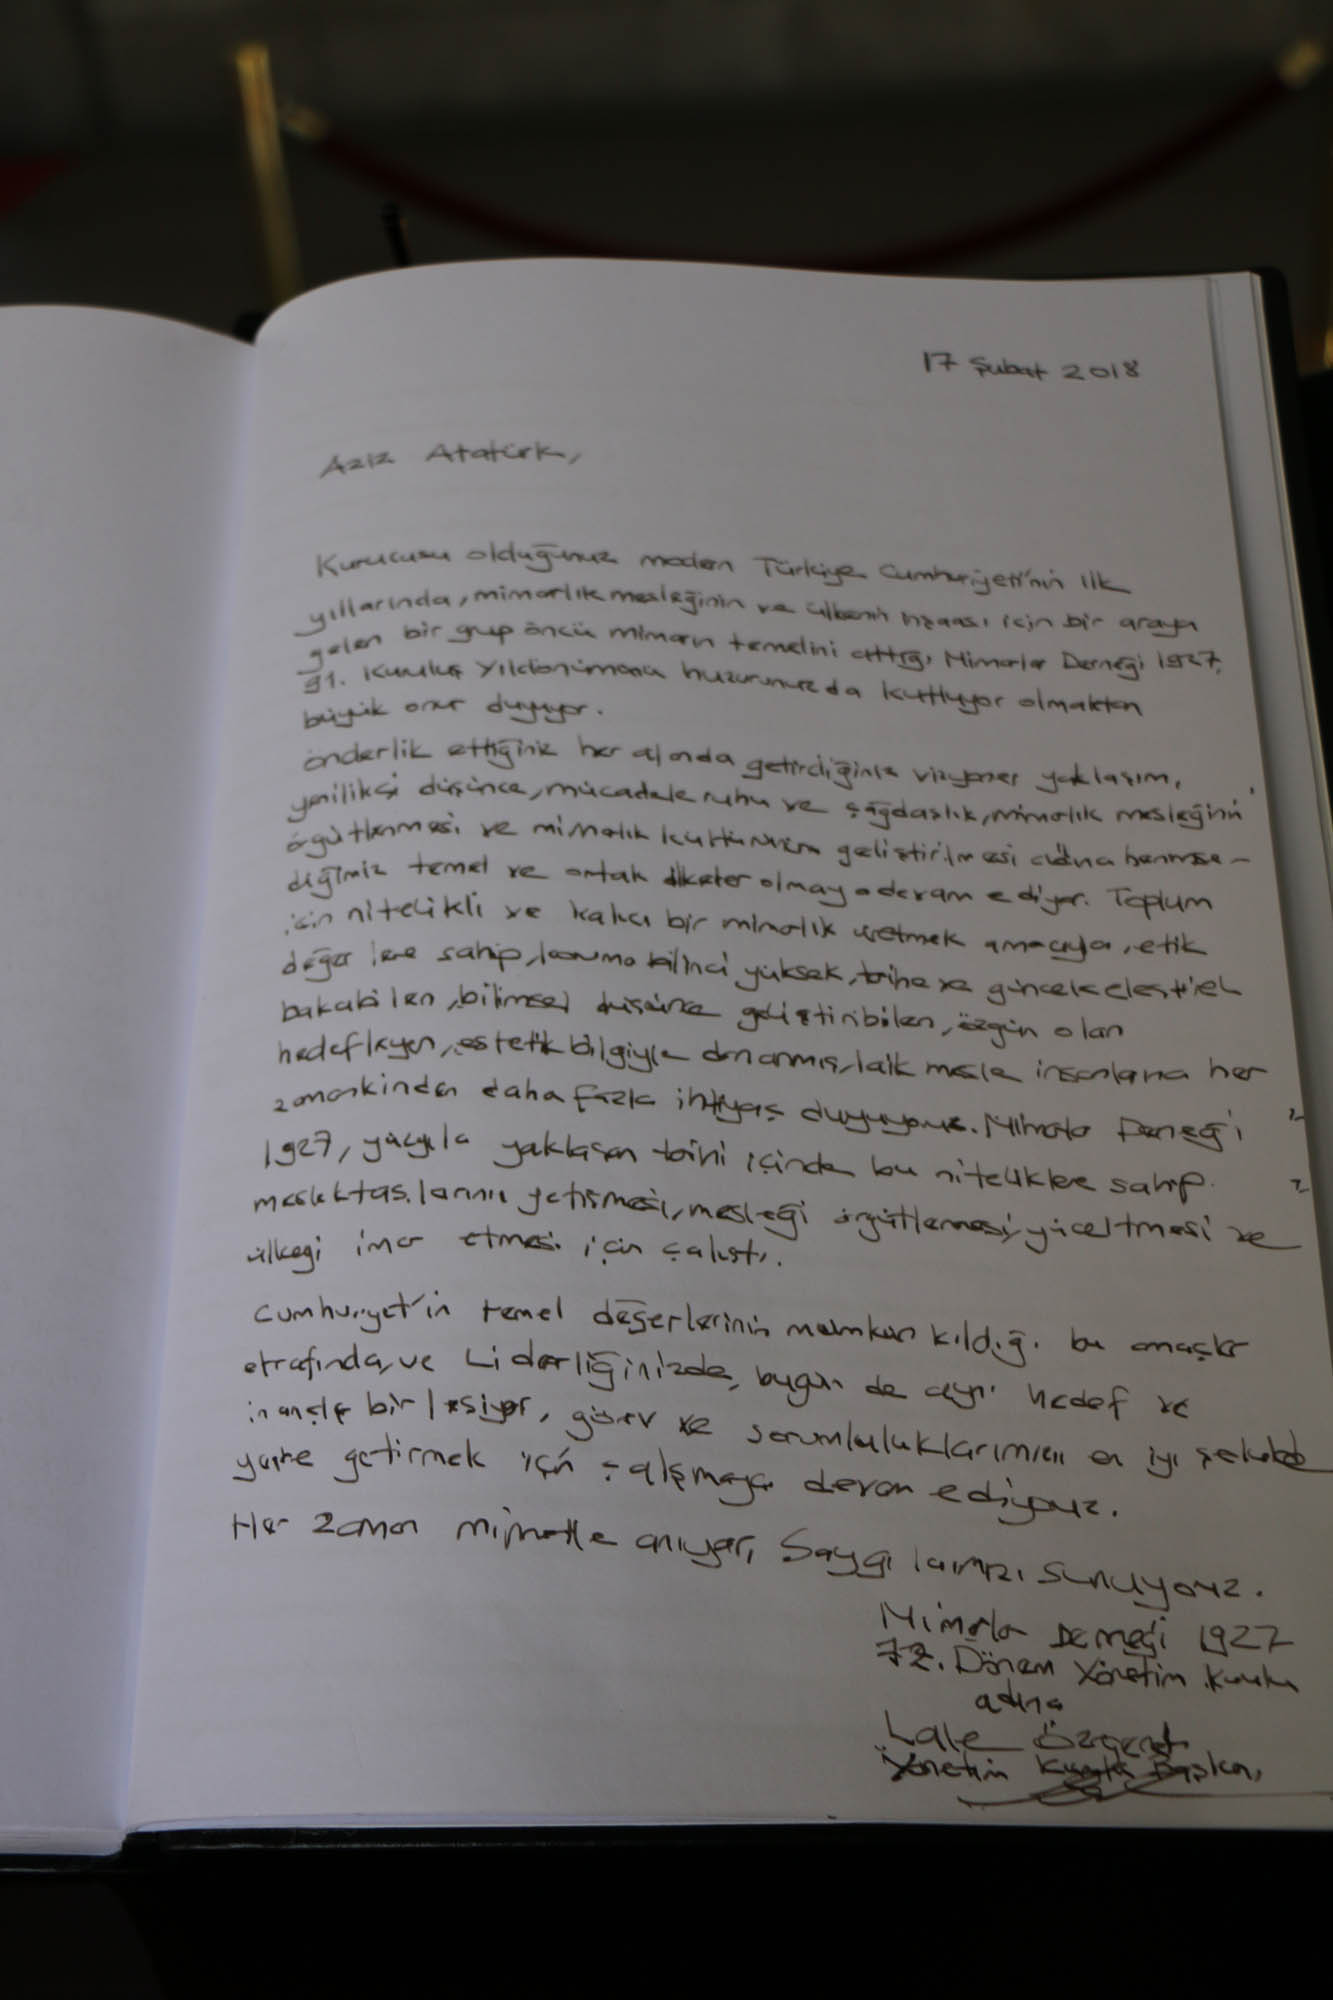 17 Şubat 2018
Aziz Atatürk,
Kurucusu olduğunuz modern Türkiye Cumhuriyeti'nin ilk
yıllarında, mimarlık mesleğinin ve ülkenin inşaası için bir araya
gelen bir grup öncü mimarın temelini attığı Mimarlar Derneği 1927,
91. Kuruluş Yıldönümünü huzurunuzda kutluyor olmaktan
büyük onur duyuyor.
Önderlik ettiğiniz her alanda getirdiğiniz vizyoner yaklaşım,
yenilikçi düşünce, mücadele ruhu ve çağdaşlık, mimarlık mesleğinin
örgütlenmesi ve mimarlık kültürünün geliştirilmesi adına benimse-
diğimiz temel ve ortak ilkeler olmaya devam ediyor. Toplum
için nitelikli ve kalıcı bir mimarlık üretmek amacıyla, etik
değerlere sahip, koruma bilinci yüksek, tarihe ve güncele eleştirel
bakabilen, bilimsel düşünce geliştirebilen, özgün olanı
hedefleyen, estetik bilgiyle donanmış, laik meslek insanlarına her
zamankinden daha fazla ihtiyaç duyuyoruz. Mimarlar Derneği
1927, yüzyıla yaklaşan tarihi içinde bu niteliklere sahip
meslektaşlarının yetişmesi, mesleği örgütlenmesi, yüceltmesi ve
ülkeyi imar etmesi için çalıştı.
Cumhuriyet'in temel değerlerinin mümkün kıldığı bu amaçlar
etrafında, ve Liderliğinizde, bugün de aynı hedef ve
inançla birleşiyor, görev ve sorumluluklarımızı en iyi şekilde
yerine getirmek için çalışmaya devam ediyoruz.
Her zaman minnetle anıyor, Saygılarımızı sunuyoruz.
Mimarlar Derneği 1927
72. Dönem Yönetim Kurulu
adına
Lale Özgenel
Yönetim Kurulu Başkanı